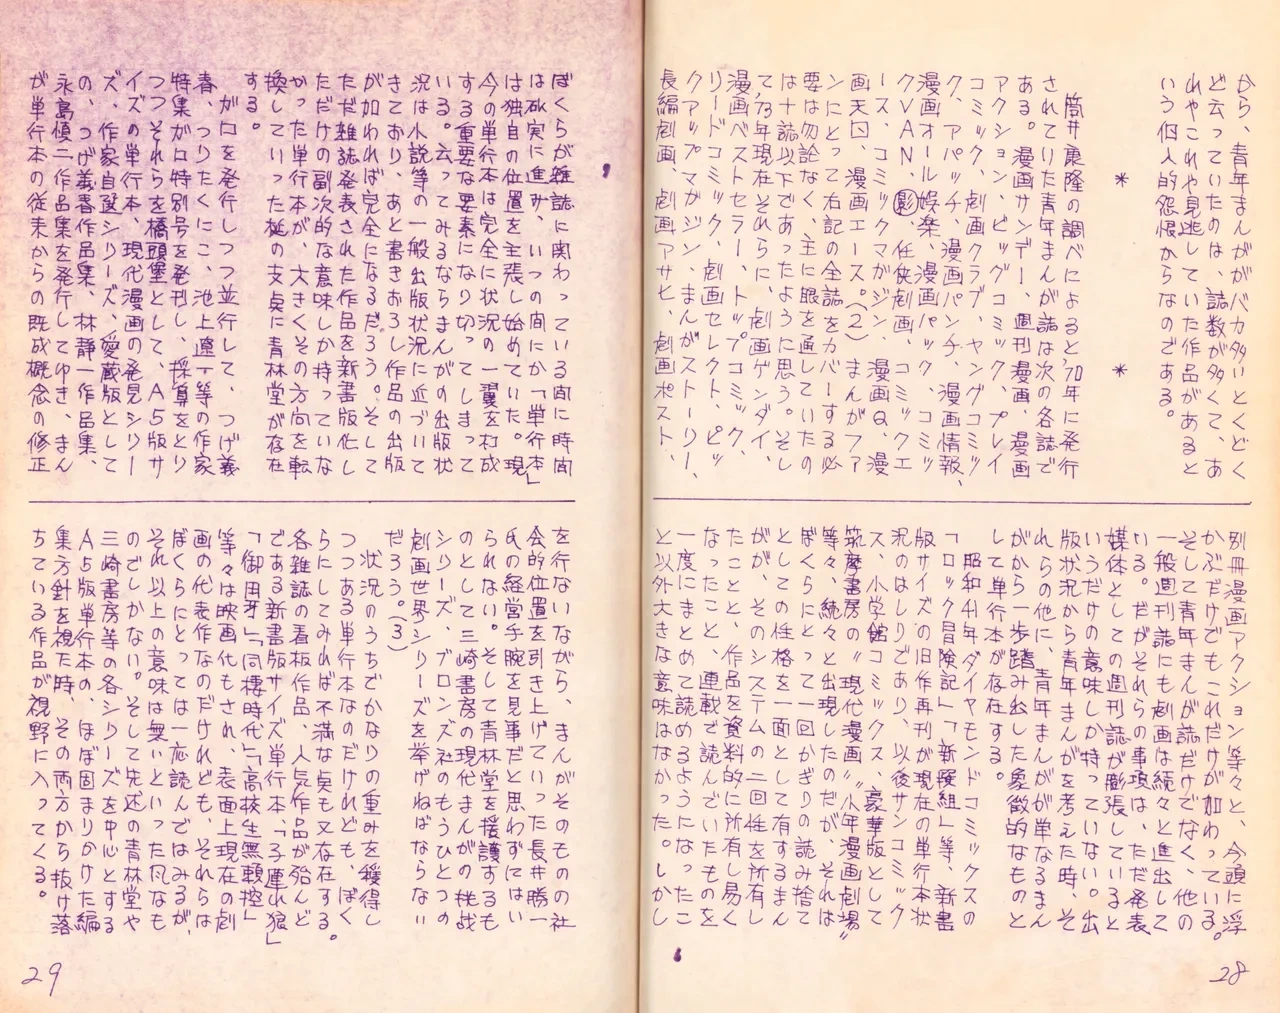 から、青年まんががバカ多いとくどく
ど云っていたのは、誌数が多くて、あ
れやこれや見逃していた作品があると
いう個人的怨恨からなのである。
＊　　　　＊
筒井康隆の調べによると70年に発行
されていた青年まんが誌は次の各誌で
ある。漫画サンデー、週刊漫画、漫画
アクション、ビッグコミック、プレイ
コミック、劇画クラブ、ヤングコミッ
ク、アパッチ、漫画パンチ、漫画情報、
漫画オール娯楽、漫画パック、コミッ
クVAN、㊙、任侠劇画、コミックエ
ース、コミックマガジン、漫画Q、漫
画天国、漫画エース。(2)まんがファ
ンにとって右記の全誌をカバーする必
要は勿論なく、主に眼を通していたの
は十誌以下であったように思う。そし
て、73年現在それらに、劇画ゲンダイ、
漫画ベストセラー、トップコミック、
リードコミック、劇画セレクト、ピッ
クアップマガジン、まんがストーリー、
長編劇画、劇画アサヒ、劇画ポスト、
別冊漫画アクション等々と、今頭に浮
かぶだけでもこれだけが加わっている。
そして青年まんが誌だけでなく、他の
一般週刊誌にも劇画は続々と進出して
いる。だがそれらの事項は、ただ発表
媒体としての週刊誌が膨張していると
いうだけの意味しか持っていない。出
版状況から青年まんがを考えた時、そ
れらの他に、青年まんがが単なるまん
がから一歩踏み出した象徴的なものと
して単行本が存在する。
昭和41年ダイヤモンドコミックスの
「ロック冒険記」「新選組」等、新書
版サイズの旧作再刊が現在の単行本状
況のはしりであり、以後サンコミック
ス、小学館コミックス、豪華版として
筑摩書房の〝現代漫画〟〝少年漫画劇場〟
等々、続々と出現したのだが、それは
ぼくらにとって一回かぎりの読み捨て
としての性格を一面として有するまん
がが、そのシステムの二回性を所有し
たことと、作品を資料的に所有し易く
なったこと、連載で読んでいたものを
一度にまとめて読めるようになったこ
と以外大きな意味はなかった。しかし
28
ぼくらが雑誌に関わっている間に時間
は砿実に進み、いつの間にか「単行本」
は独自の位置を主張し始めていた。現
今の単行本は完全に状況の一翼を打成
する重要な要素になり切ってしまって
いる。云ってみるならまんがの出版状
況は小説等の一般出版状況に近づいて
きており、あと書きおろし作品の出版
が加われば完全になるだろう。そして
ただ雑誌発表された作品を新書版化し
ただけの副次的な意味しか持っていな
かった単行本が、大きくその方向を転
換していった梃の支点に青林堂が存在
する。
ガロを発行しつつ並行して、つげ義
春、つりたくにこ、池上遼一等の作家
特集ガロ特別号を発刊し、採算をとり
つつそれらを橋頭堡として、A5版サ
イズの単行本、現代漫画の発見シリー
ズ、作家自選シリーズ、愛蔵版として
の、つげ義春作品集、林静一作品集、
永島慎二作品集を発行してゆき、まん
が単行本の従来からの既成概念の修正
を行ないながら、まんがそのものの社
会的位置を引き上げていった長井勝一
氏の経営手腕を見事だと思わずにはい
られない。そして青林堂を援護するも
のとして三崎書房の現代まんがの挑戦
シリーズ、ブロンズ社のもうひとつの
劇画世界シリーズを挙げねばならない
だろう。(3)
状況のうちでかなりの重みを獲得し
つつある単行本なのだけれども、ぼく
らにしてみれば不満な点も又存在する。
各雑誌の看板作品、人気作品が殆んど
である新書版サイズ単行本、「子連れ狼」
「御用牙」「同棲時代」「高校生無頼控」
等々は映画化もされ、表面上現在の劇
画の代表作なのだけれども、それらは
ぼくらにとっては一応読んではみるが、
それ以上の意味は無いといった凡なも
のでしかない。そして先述の青林堂や
三崎書房等の各シリーズを中心とする
A5版単行本の、ほぼ固まりかけた編
集方針を視た時、その両方から抜け落
ちている作品が視野に入ってくる。
29